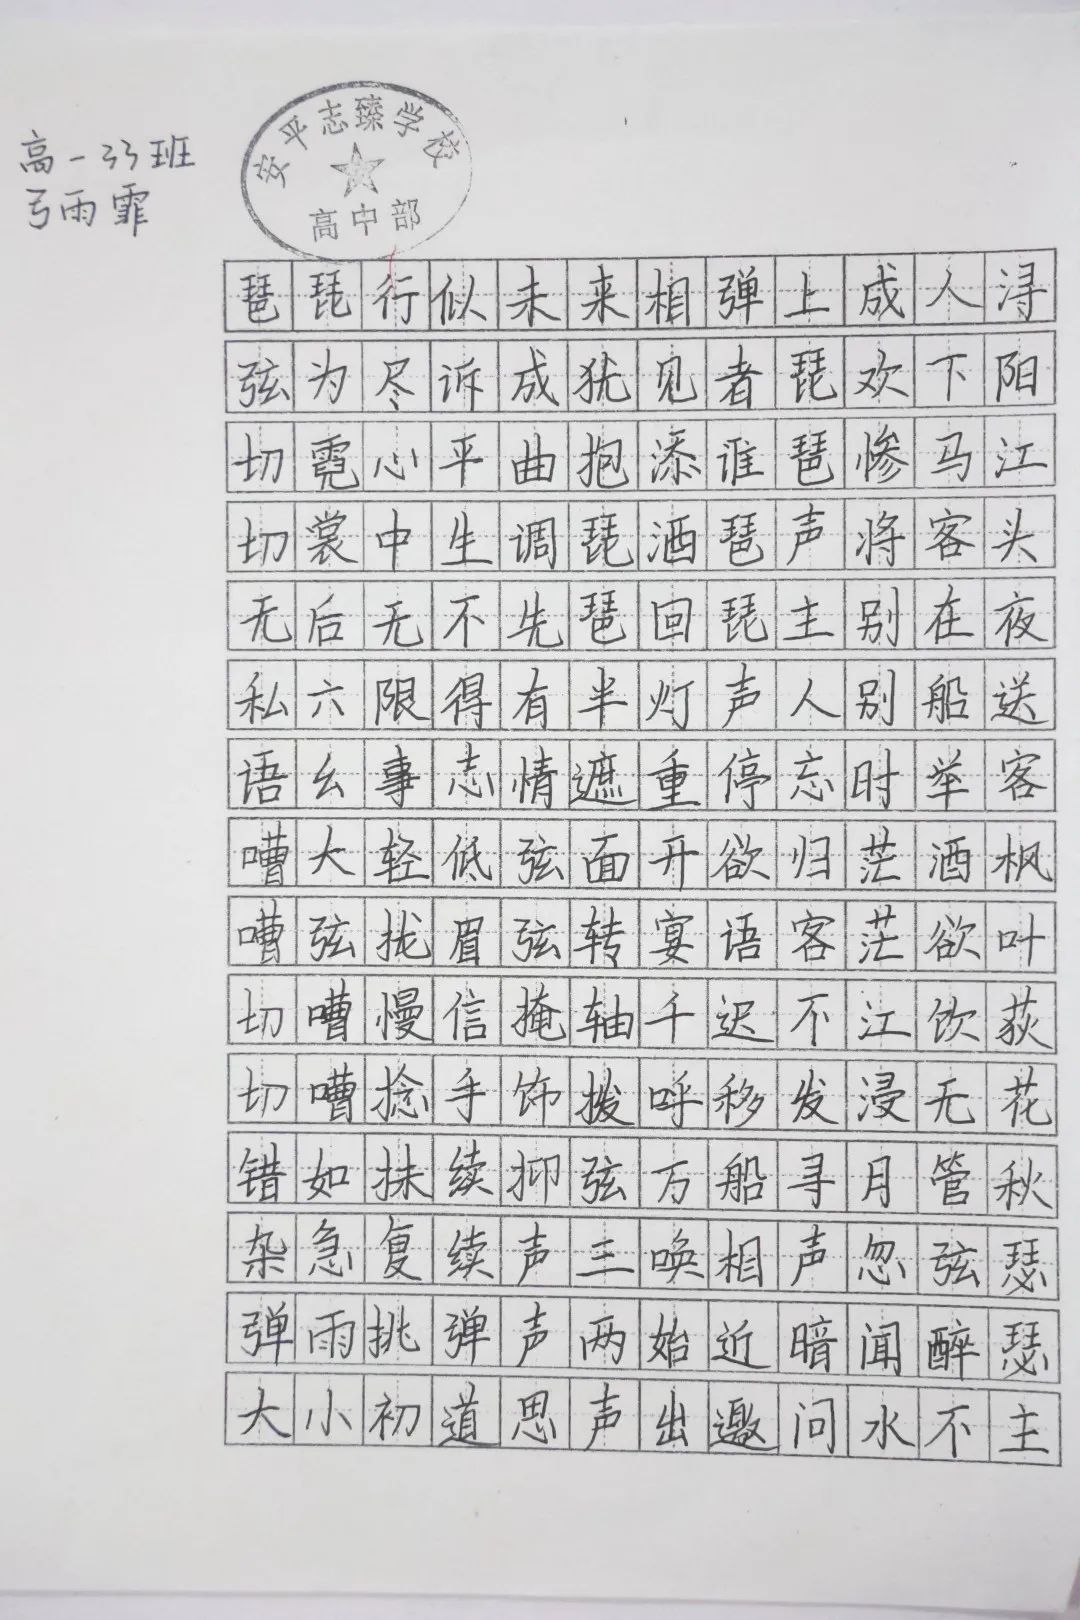 安平志臻学校
高中部
高一33班
弓雨霏
浔阳江头夜送客枫叶荻花秋瑟瑟主
人下马客在船举酒欲饮无管弦醉不
成欢惨将别别时茫茫江浸月忽闻水
上琵琶声主人忘归客不发寻声暗问
弹者谁琶琵声停欲语迟移船相近邀
相见添洒回灯重开宴千呼万唤始出
来犹抱琵琶半遮面转轴拨弦三两声
未成曲调先有情弦弦掩饰抑声声思
似诉平生不得志低眉信手续续弹道
行尽心中无限事轻拢慢捻抹复挑初
琵为霓裳后六幺大弦嘈嘈如急雨小
琶弦切切无私语嘈嘈切切错杂弹大